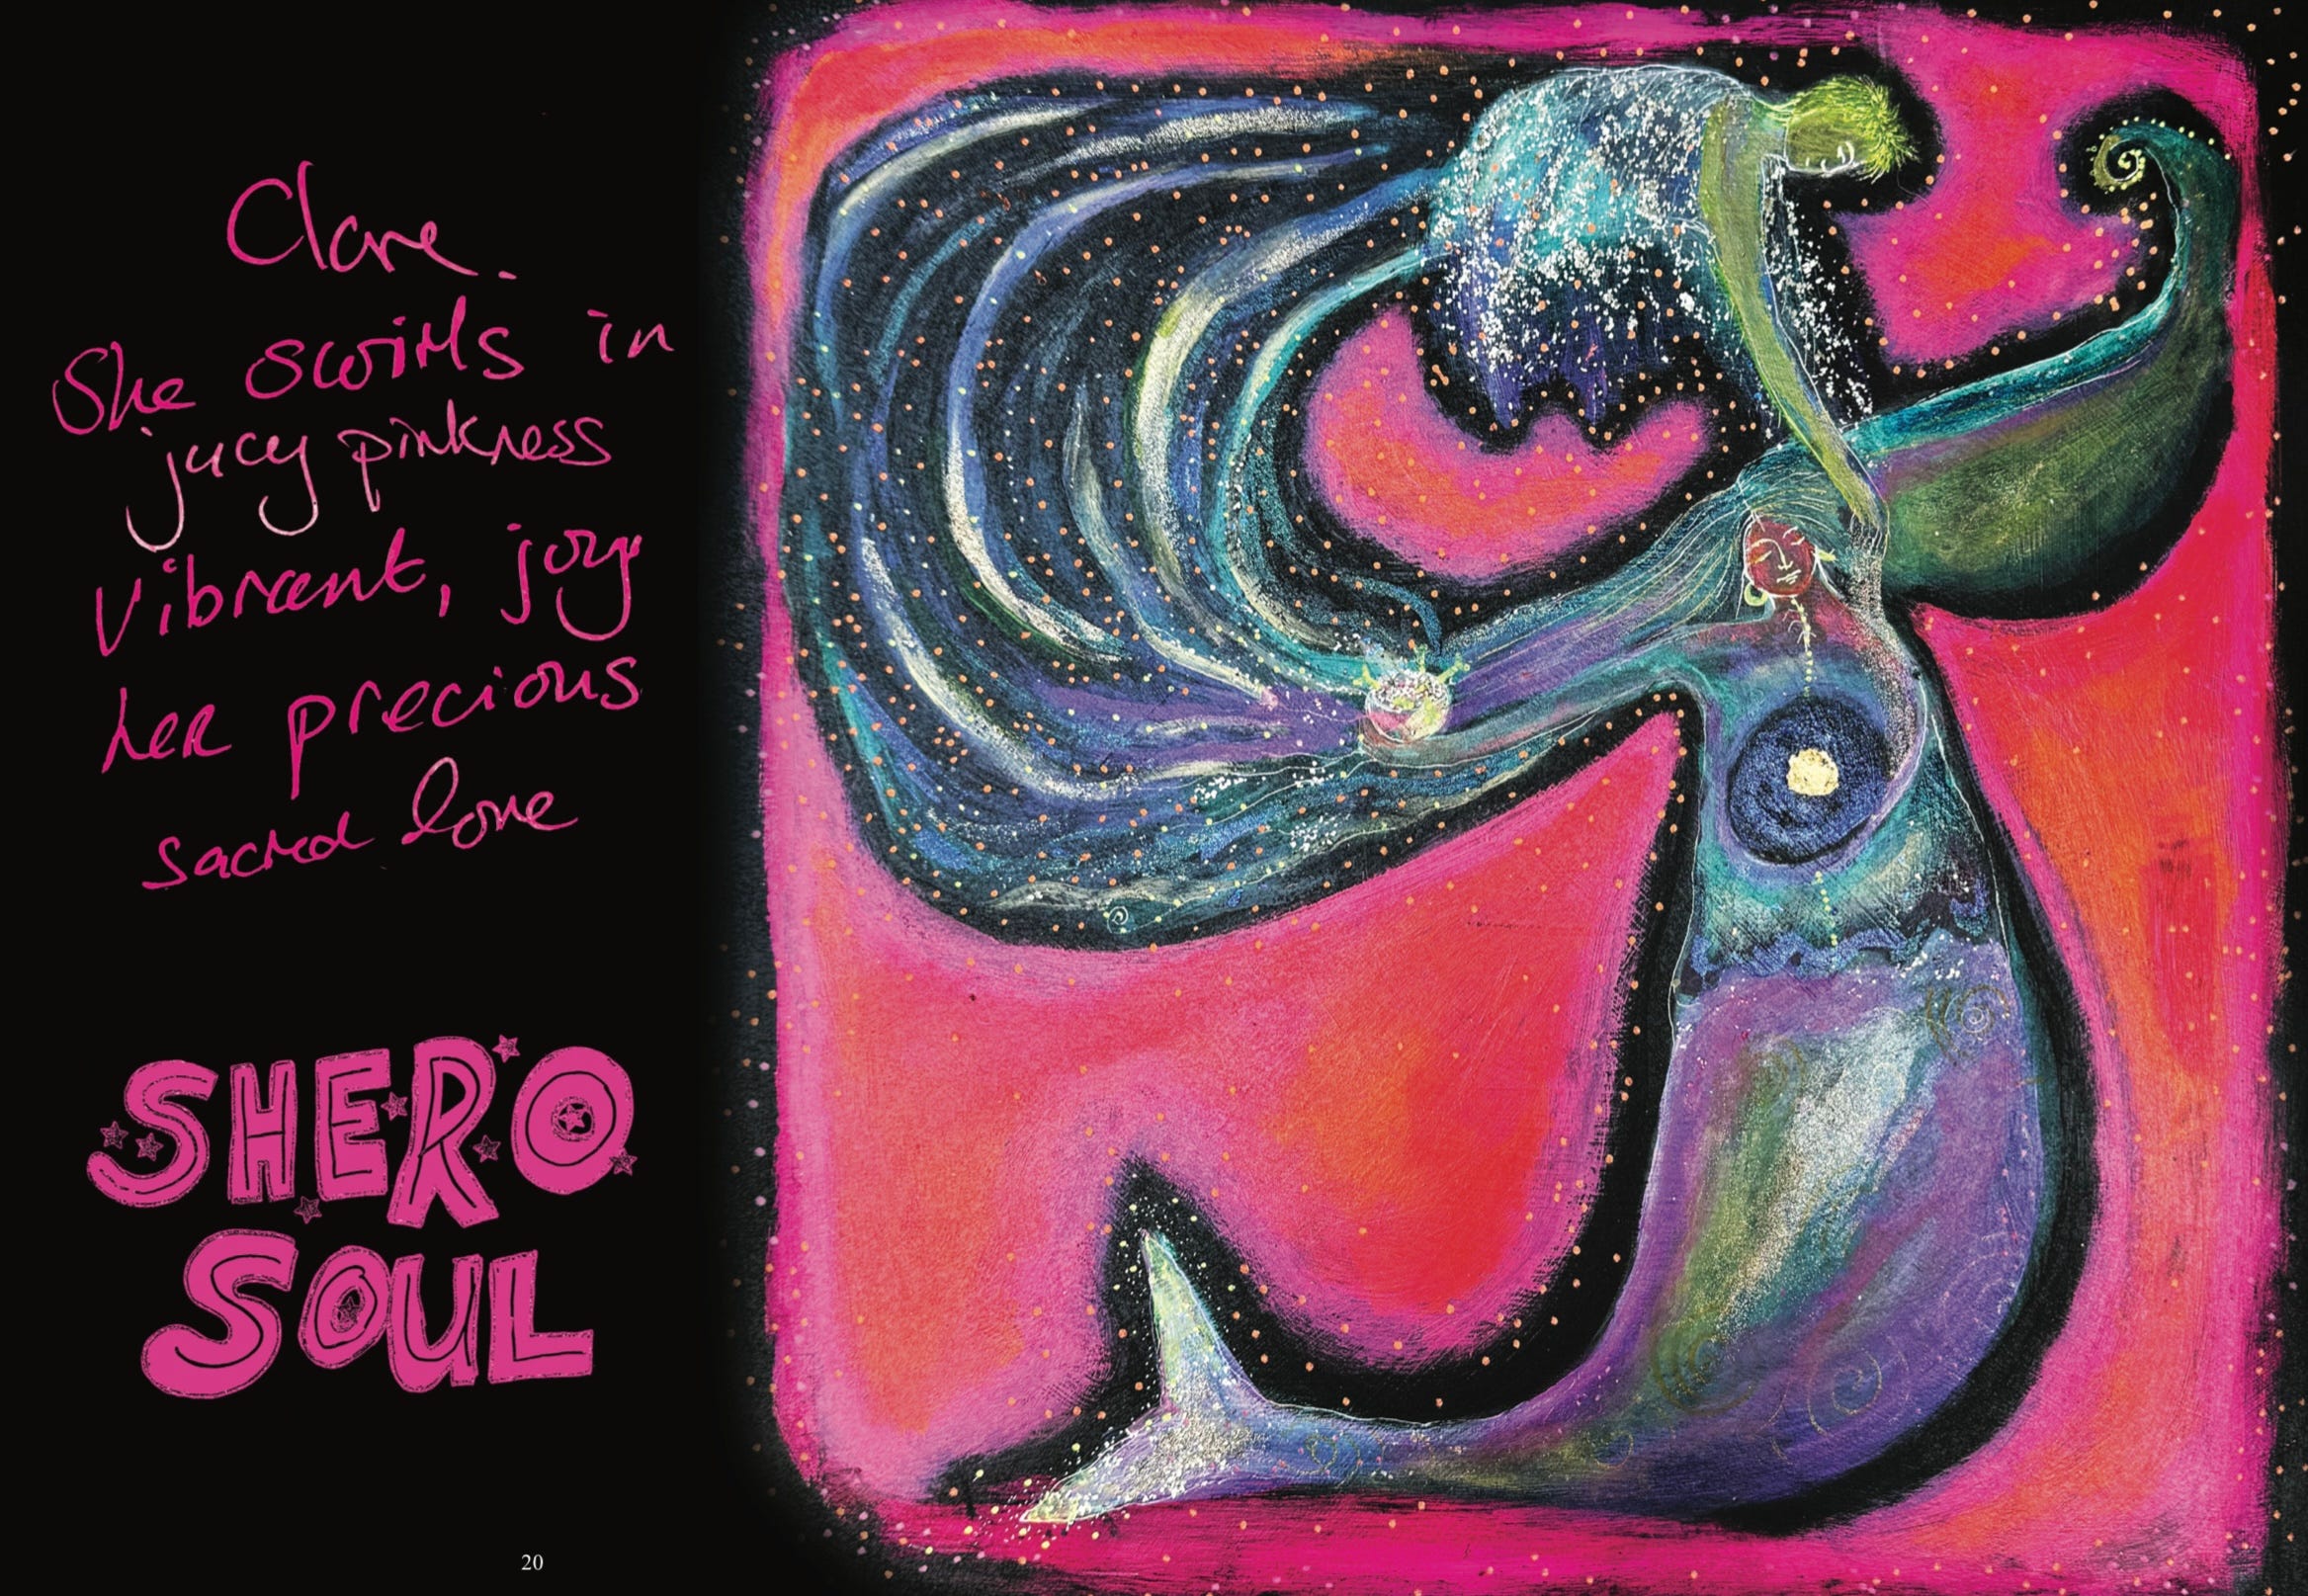 Clare.
She swirls in
jucy pinkness
vibrant, joy
her precious
sacred love
SHERO
SOUL
20